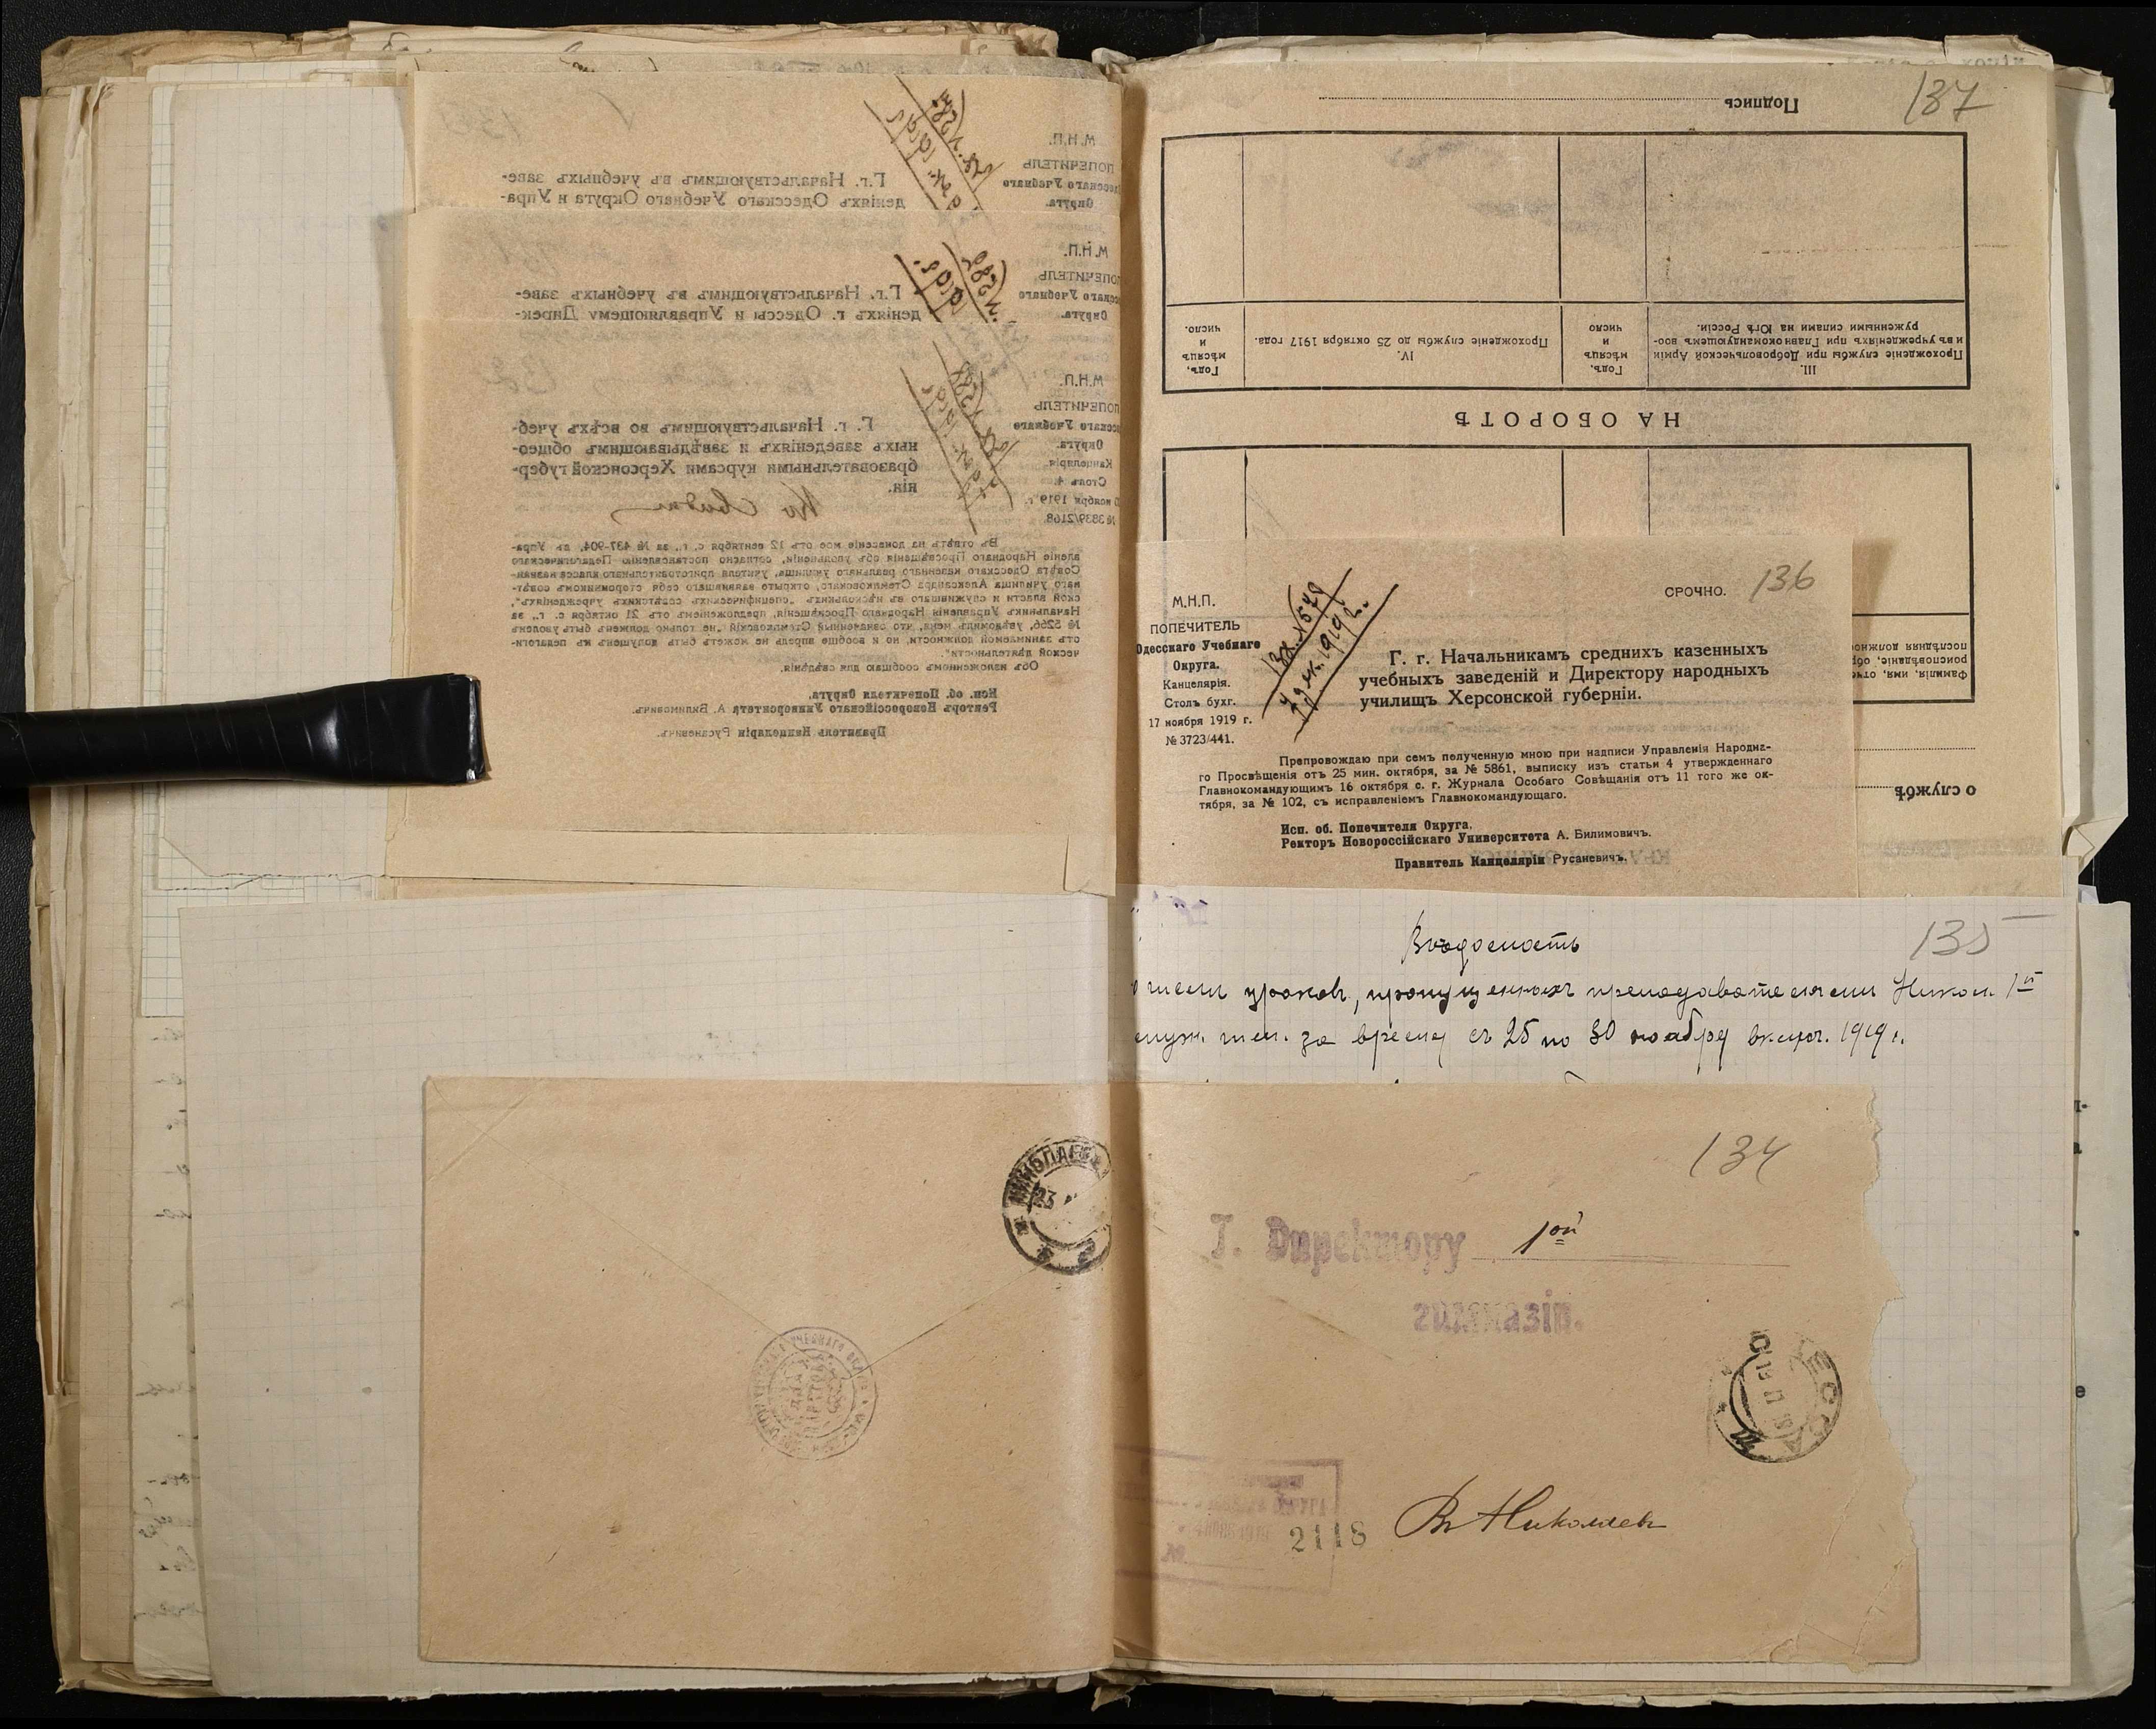 М.Н.П.
ПОПЕЧИТЕЛЬ
Г.г. Начальствующимъ въ учебныхъ заве-
деніяхъ Одесскаго Учебнаго Округа и Упра-
М.Н.П.
ПОПЕЧИТЕЛЬ
Г.г. Начальствующимъ въ учебныхъ заве-
деніяхъ г. Одессы и Управляющему Дирек-
М.Н.П.
ПОПЕЧИТЕЛЬ
Учебнаго
Округа.
Канцелярія.
Столъ 4
ноября 1919 г.
№ 3839/2168
Г. г. Начальствующимъ во всѣхъ учеб-
ныхъ заведеніяхъ и завѣдывающимъ общео-
бразовательными курсами Херсонской губер-
ніи.
Въ отвѣтъ на донесеніе мое отъ 12 сентября с. г., за № 437-904, въ Упра-
вленіе Народнаго Просвѣщенія объ увольненіи, согласно постановленію Педагогическаго
Совѣта Одесскаго казеннаго реальнаго училища, учителя приготовительнаго класса назван-
наго училища Александра Стемковскаго, открыто заявившаго себя сторонникомъ совѣт-
ской власти и служившаго въ нѣсколькихъ „специфическихъ совѣтскихъ учрежденіяхъ“,
Начальникъ Управленія Народнаго Просвѣщенія, предложеніемъ отъ 21 октября с. г., за
№ 5266, увѣдомилъ меня, что означенный Стемковскій „не только долженъ быть уволенъ
отъ занимаемой должности, но и вообще впредь не можетъ быть допущенъ къ педагоги-
ческой дѣятельности“.
Объ изложенномъ сообщаю для свѣдѣнія.
Исп. об. Попечителя Округа,
Ректоръ Новороссійскаго Университета А. Билимовичъ.
Правитель Канцеляріи Русановичъ.
137
Подпись
Годъ, мѣсяцъ и число.
IV.
Прохожденіе службы до 25 октября 1917 года.
Годъ, мѣсяцъ и число
III.
Прохожденіе службы при Добровольческой Арміи
и въ учрежденіяхъ при Главнокомандующемъ воо-
руженными силами на Югѣ Россіи.
НА ОБОРОТѢ
Фамилія, имя, отче
послѣдняя должнос
о службѣ
136
СРОЧНО.
М.Н.П.
ПОПЕЧИТЕЛЬ
Одесскаго Учебнаго
Округа.
Канцелярія.
Столъ бухг.
17 ноября 1919 г.
№ 3723/441.
Вх. № 579
4 дек. 1919 г.
Г. г. Начальникамъ среднихъ казенныхъ
учебныхъ заведеній и Директору народныхъ
училищъ Херсонской губерніи.
Препровождаю при семъ полученную мною при надписи Управленія Народна-
го Просвѣщенія отъ 25 мин. октября, за № 5861, выписку изъ статьи 4 утвержденнаго
Главнокомандующимъ 16 октября с. г. Журнала Особаго Совѣщанія отъ 11 того же ок-
тября, за № 102, съ исправленіемъ Главнокомандующаго.
Исп. об. Попечителя Округа,
Ректоръ Новороссійскаго Университета А. Билимовичъ.
Правитель Канцеляріи Русаневичъ.
135
Вѣдомость
числѣ уроковъ, пропущенныхъ преподавателями Никол. 1й
муж. гим. за время съ 25 по 30 ноября включ. 1919 г.
134
Г. Директору 1ой
гимназіи.
ОДЕССА
НИКОЛАЕВ
2118
Въ Николаевъ